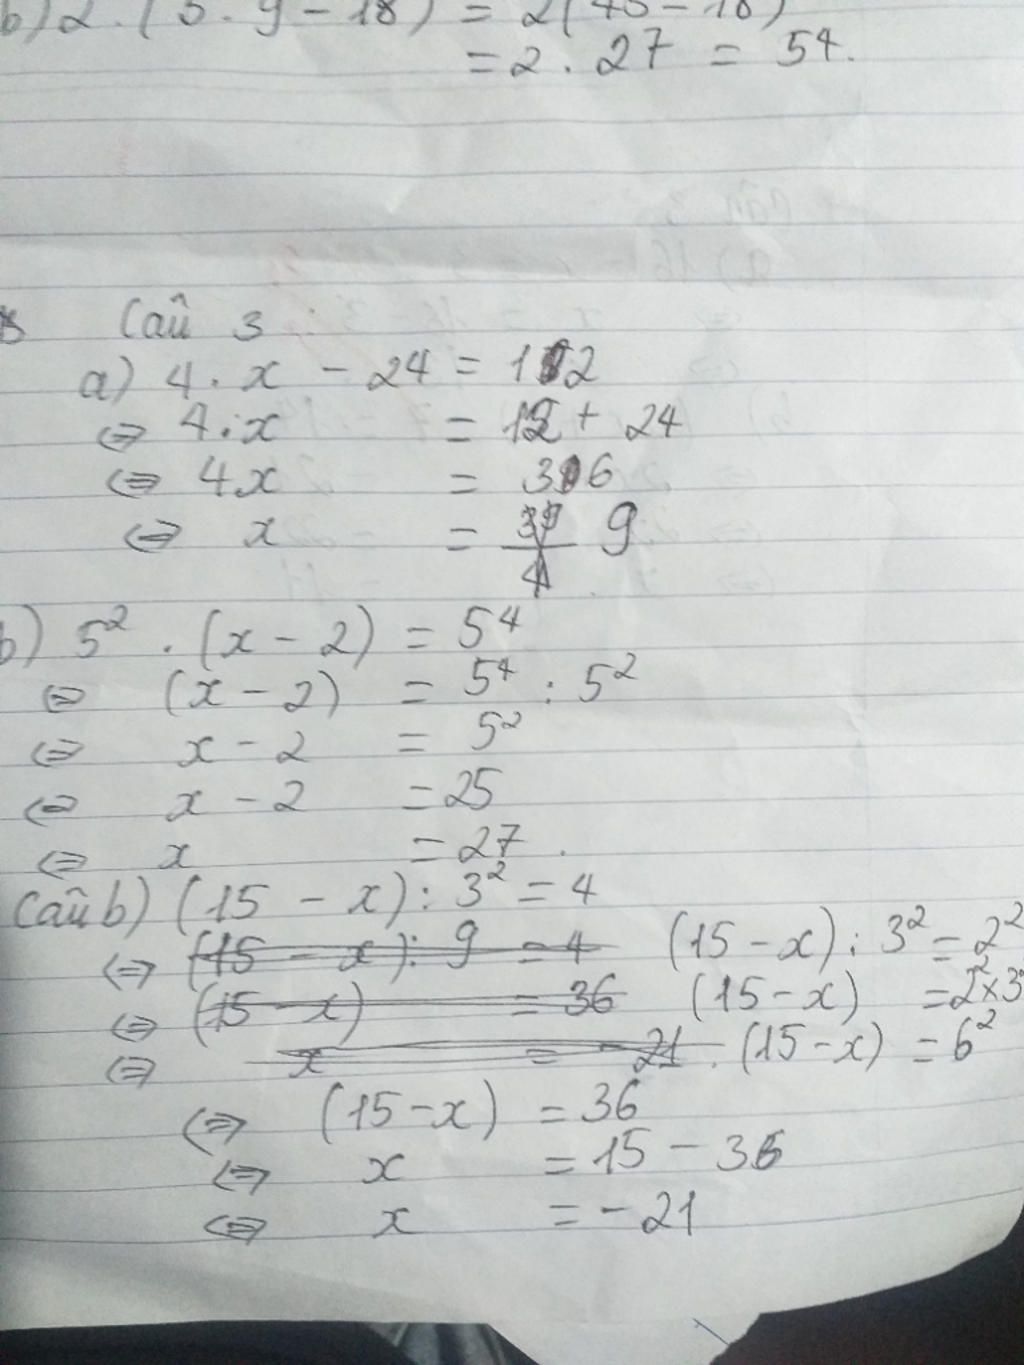 b) 2 . (5 . 9 - 18) = 2(45 - 18)
= 2 . 27 = 54.
Câu 3
a) 4 . x - 24 = 12
⇔ 4 . x = 12 + 24
⇔ 4x = 36
⇔ x = 9
b) 5² . (x - 2) = 5⁴
⇔ (x - 2) = 5⁴ : 5²
⇔ x - 2 = 5²
⇔ x - 2 = 25
⇔ x = 27.
Câu b) (15 - x) : 3² = 4
⇔ (15 - x) : 9 = 4 (15 - x) : 3² = 2²
⇔ (15 - x) = 36 (15 - x) = 2² x 3²
⇔ x = -21 . (15 - x) = 6²
⇔ (15 - x) = 36
⇔ x = 15 - 36
⇔ x = -21